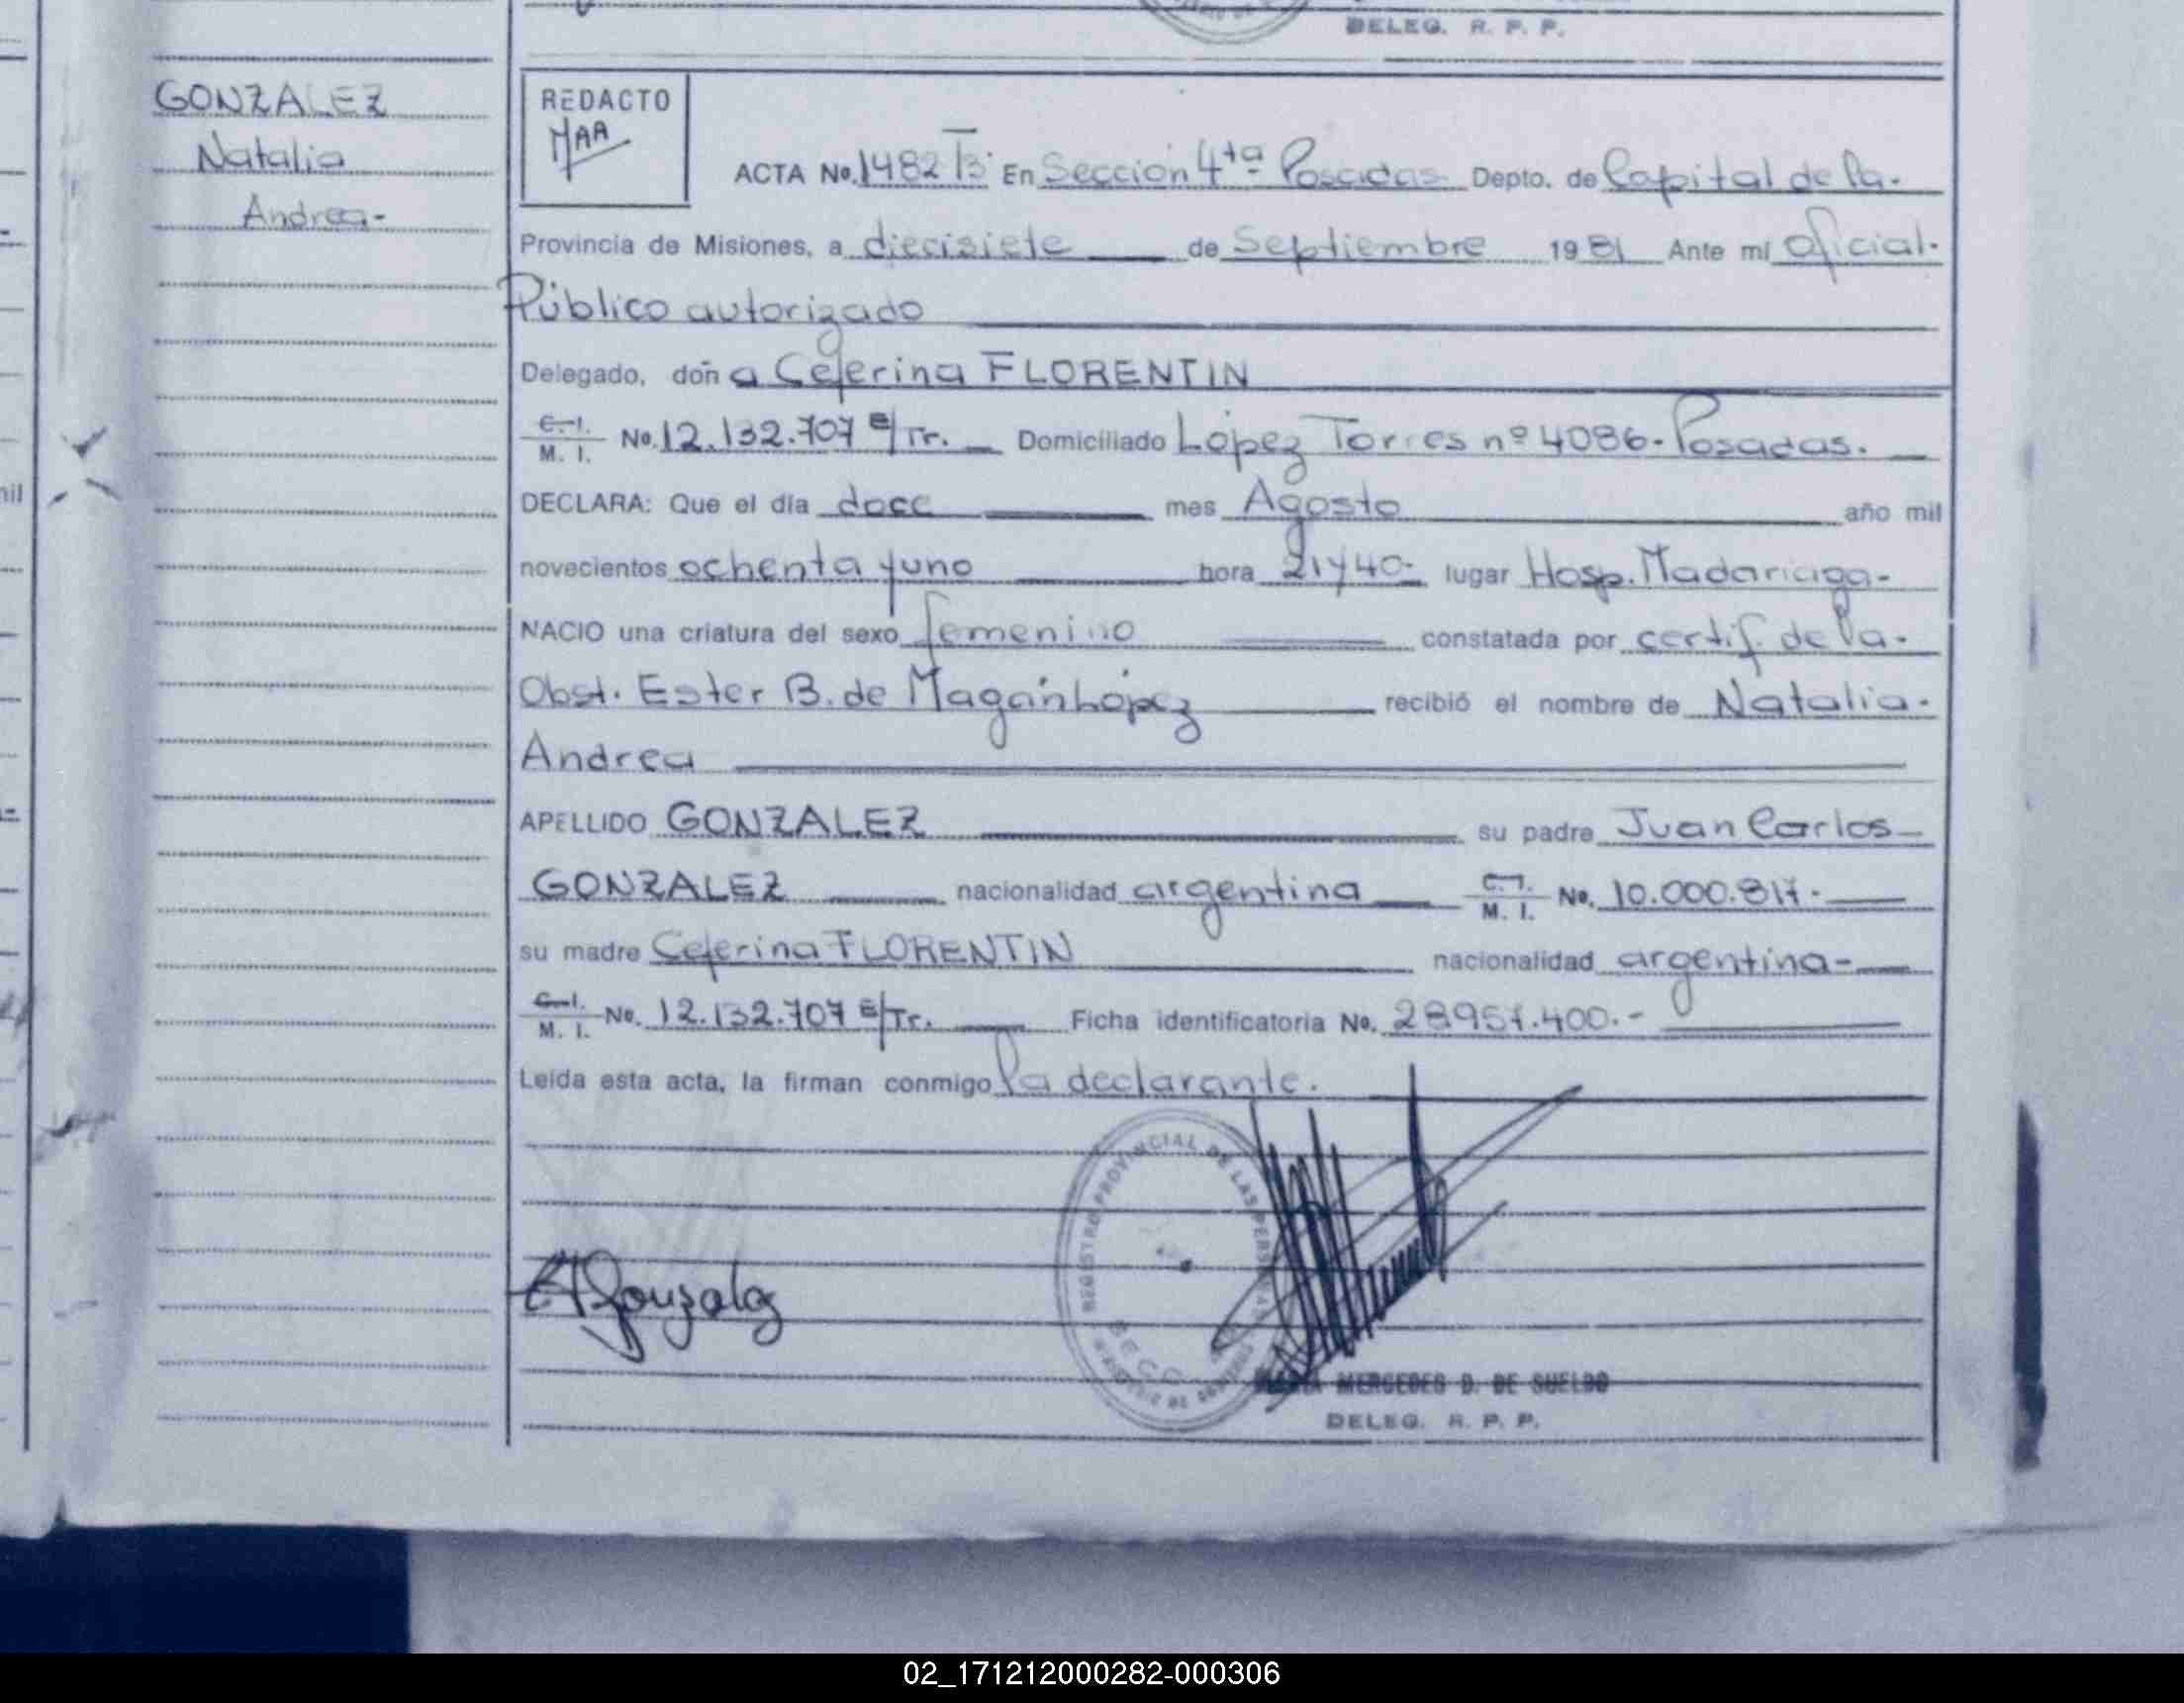 DELEG. R. P. P.
GONZALEZ
Natalia
Andrea-
REDACTO
MAA
ACTA No. 1482 T3 En Sección 4ta Posadas Depto. de Capital de la.
Provincia de Misiones, a diecisiete de Septiembre 1981 Ante mí Oficial.
Público autorizado
Delegado, doña Ceferina FLORENTIN
C. I. M. I. No. 12.132.707 E/Tr. Domiciliado López Torres nº 4086-Posadas.
DECLARA: Que el día doce mes Agosto año mil
novecientos ochenta y uno hora 21 y 40- lugar Hosp. Madariaga-
NACIO una criatura del sexo femenino constatada por certif. de la.
Obst. Ester B. de recibió el nombre de Natalia.
Andrea
APELLIDO GONZALEZ su padre Juan Carlos
GONZALEZ nacionalidad argentina C. I. M. I. No. 10.000.817.
su madre Ceferina FLORENTIN nacionalidad argentina-
C. I. M. I. No. 12.132.707 E/Tr. Ficha identificatoria No. 28957.400.-
Leída esta acta, la firman conmigo la declarante.
REGISTRO PROVINCIAL DE LAS PERSONAS
Gonzalez
MERCEDES D. DE SUELDO
DELEG. R. P. P.
02_171212000282-000306